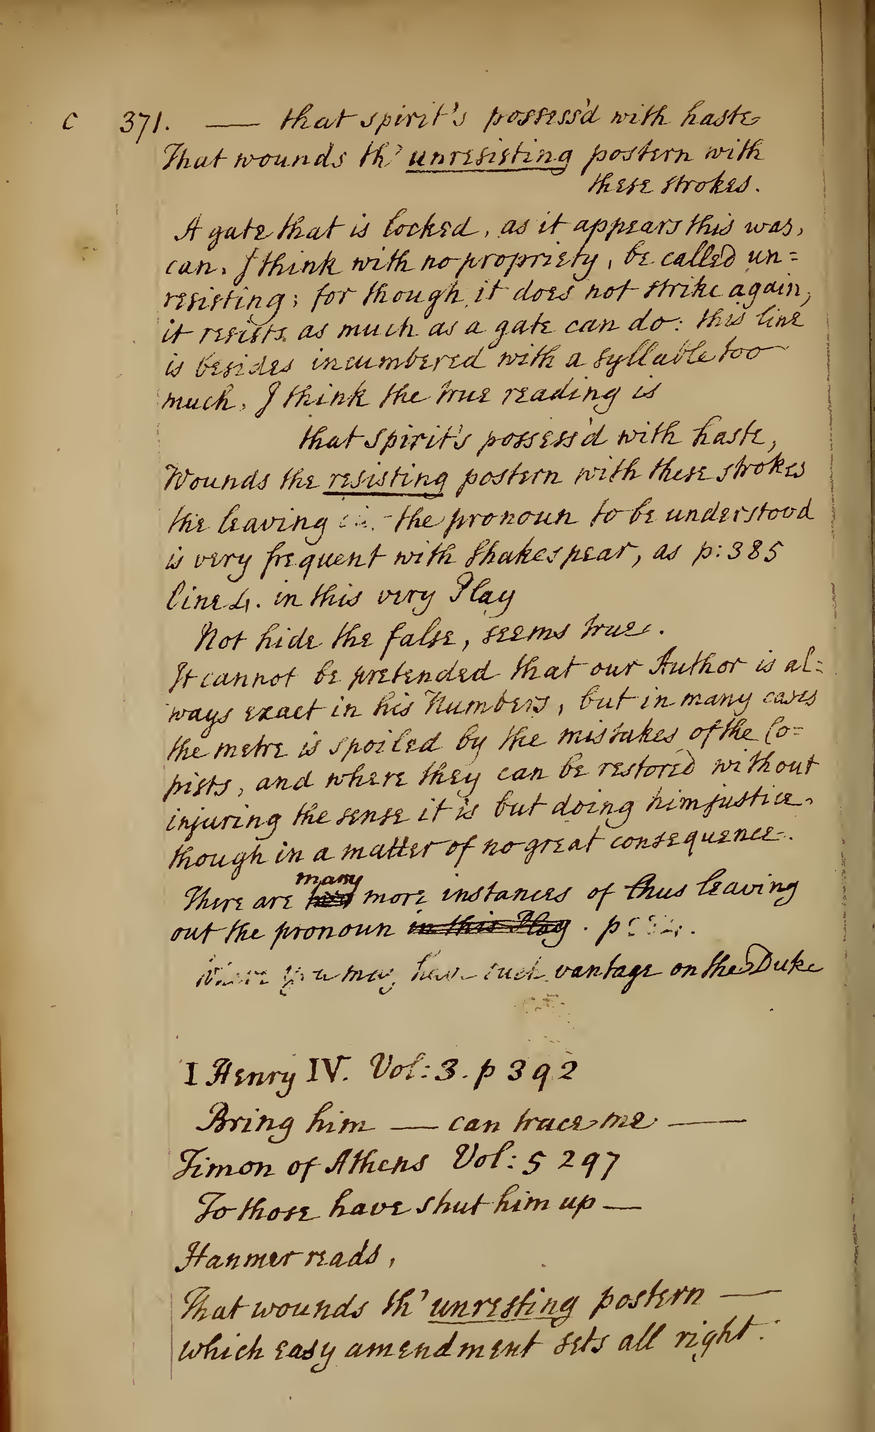 c 371. —— that spirit's possess'd with haste
That wounds th' unresisting postern with
these strokes.
A gate that is locked, as it appears this was,
can, I think with no propriety, be called un=
resisting; for though it does not strike again,
it resists as much as a gate can do: this line
is besides incumbered with a syllable too
much, I think the true reading is
that spirit's possess'd with haste,
Wounds the resisting postern with these strokes
the leaving the pronoun to be understood
is very frequent with Shakespear, as p: 385
line 4. in this very Play
Not hide the false, seems true.
It cannot be pretended that our Author is al=
ways exact in his Numbers, but in many cases
the metre is spoiled by the mistakes of the Co=
pists, and where they can be restored without
injuring the sense it is but doing him justice,
though in a matter of no great consequence.
There are many more instances of thus leaving
out the pronoun in this Play. p
Where you may have such vantage on the Duke
I Henry IV. Vol: 3. p 392
Bring him — can trace me ——
Timon of Athens Vol: 5 297
To those have shut him up —
Hanmer reads,
That wounds th' unresting postern ——
which easy amendment sets all right.